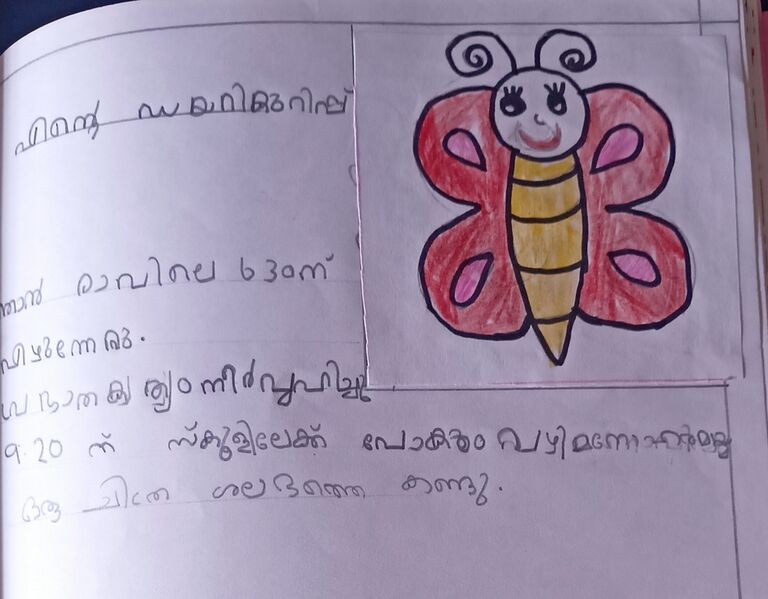 എന്റെ ഡയറികുറിപ്പ്
ഞാൻ രാവിലെ 6 30ന്
എഴുന്നേറ്റു.
പ്രഭാതകൃത്യം നിർവ്വഹിച്ചു
9.20 ന് സ്കൂളിലേക്ക് പോകും വഴി മനോഹരമായ
ഒരു ചിത്ര ശലഭത്തെ കണ്ടു.